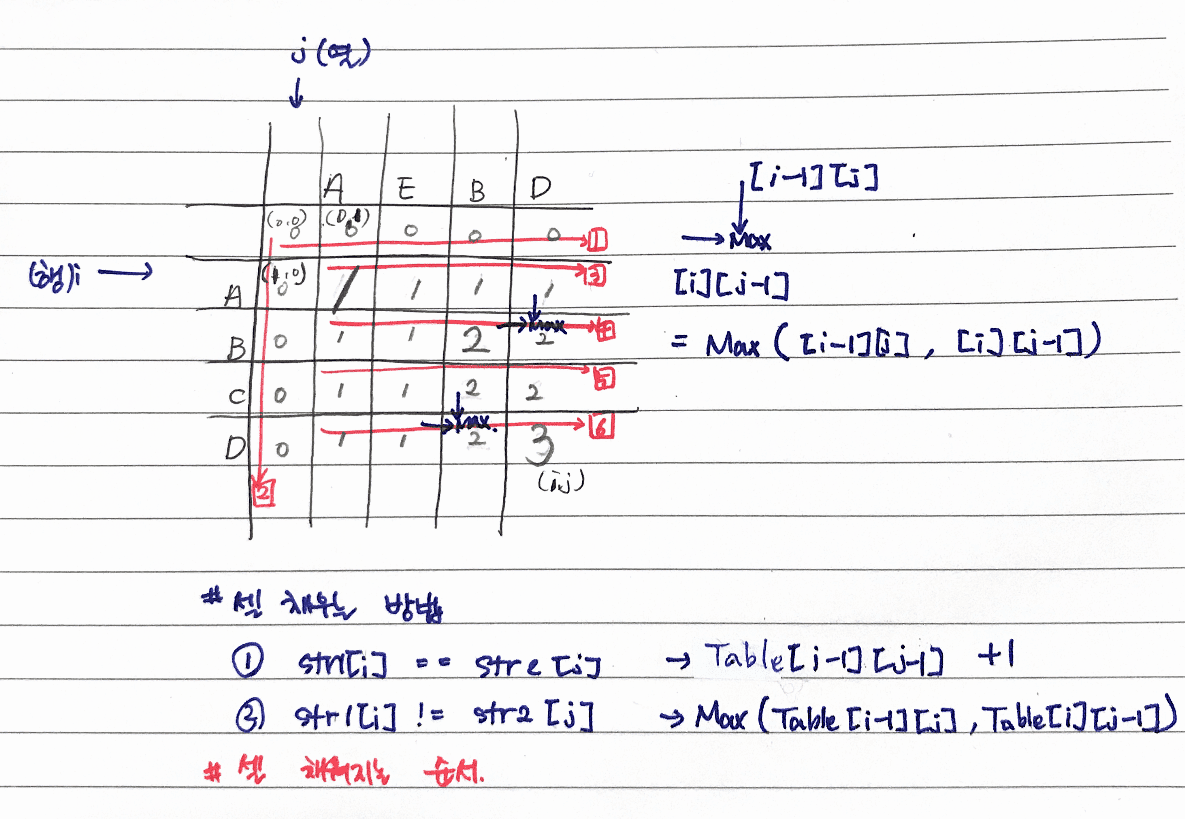 j (열)
A E B D
(0,0) (0,1)
0 0 0 0 0 1
[i-1][j]
→ Max
(행)i → (1,0) 3
A 0 1 1 1 1
[i][j-1]
→ Max 4
B 0 1 1 2 2
= Max ( [i-1][j] , [i][j-1] )
5
C 0 1 1 2 2
→ Max. 6
D 0 1 1 2 3
2 (i,j)
# 셀 채우는 방법
① str1[i] == str2 [j] → Table[i-1][j-1] +1
③ str1[i] != str2 [j] → Max (Table [i-1][j] , Table[i][j-1])
# 셀 채워지는 순서.